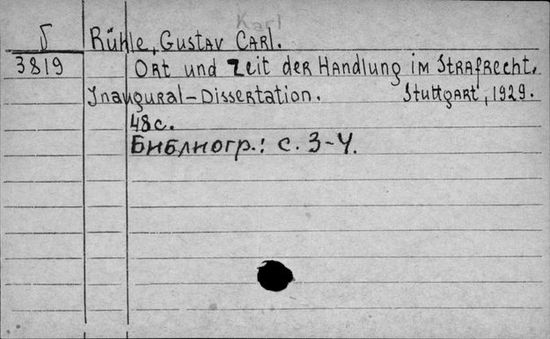 Karl
Б Rühle, Gustav Carl.
3819 Ort und Zeit der Handlung im Strafrecht.
Inaugural-Dissertation. Stuttgart, 1929.
48с.
Библиогр.: с. 3-4.